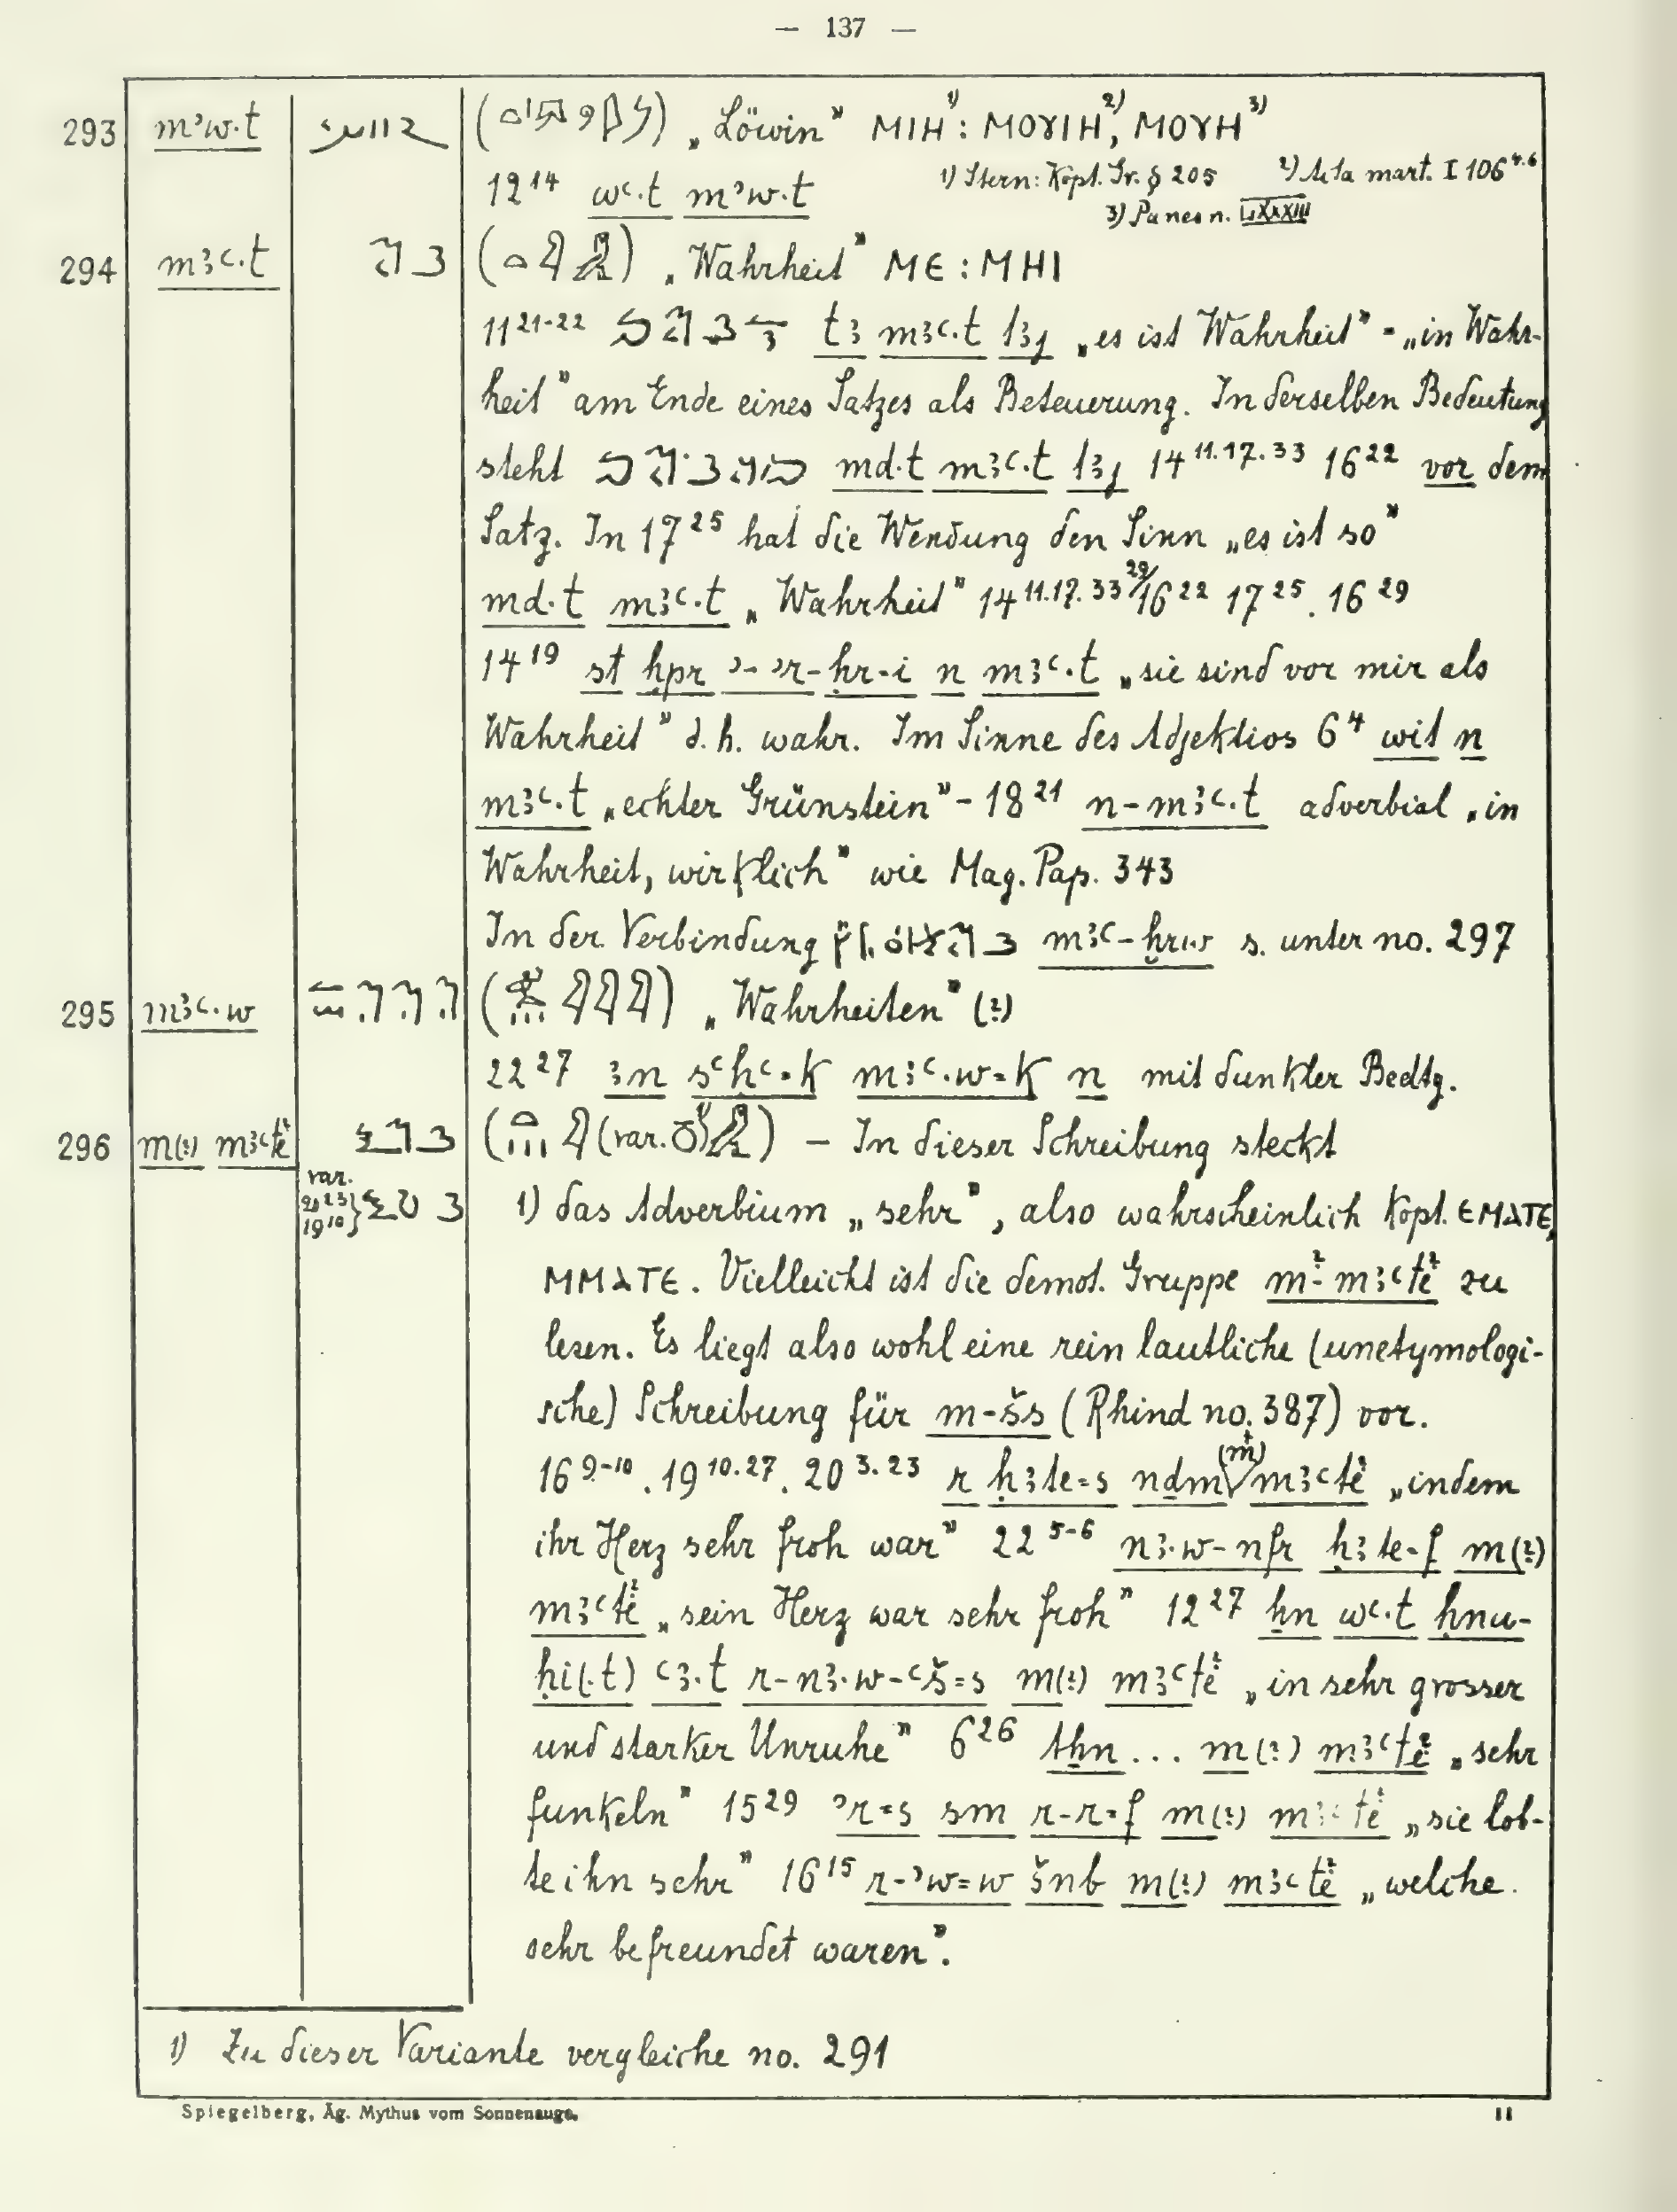 — 137 —
293 mʾw·t ( ) „Löwin" ⲘⲒⲎ¹⁾: ⲘⲞⲨⲒⲎ,²⁾ ⲘⲞⲨⲎ³⁾
12¹⁴ wꜥ·t mʾw·t 1) Stern: Kopt. Gr. § 205 2) Acta mart. I 106⁴·⁶
3) n. LXXXIII
294 mꜣꜥ·t ( ) „Wahrheit" ⲘⲈ : ⲘⲎⲒ
11²¹⁻²² tꜣ mꜣꜥ·t tꜣj „es ist Wahrheit" = „in Wahr-
heit" am Ende eines Satzes als Beteuerung. In derselben Bedeutung
steht md·t mꜣꜥ·t tꜣj 14¹¹·¹⁷·³³ 16²² vor dem
Satz. In 17²⁵ hat die Wendung den Sinn „es ist so"
md·t mꜣꜥ·t „Wahrheit" 14¹¹·¹⁷·³³ ²⁹/16²² 17²⁵. 16²⁹
14¹⁹ st ḫpr ʾ-ʾr-ḥr-i n mꜣꜥ·t „sie sind vor mir als
Wahrheit" d. h. wahr. Im Sinne des Adjektivs 6⁴ wit n
mꜣꜥ·t „echter Grünstein" - 18²¹ n-mꜣꜥ·t adverbial „in
Wahrheit, wirklich" wie Mag. Pap. 343
In der Verbindung mꜣꜥ-ḫrw s. unter no. 297
295 mꜣꜥ·w ( ) „Wahrheiten" (?)
22²⁷ ꜣn sꜥḥꜥ=k mꜣꜥ·w=k n mit dunkler Bedtg.
296 m(?) mꜣꜥtė² ( (var. )¹⁾ ) — In dieser Schreibung steckt
var. 20²³ 19¹⁰} 1) das Adverbium „sehr", also wahrscheinlich kopt. ⲈⲘⲀⲦⲈ,
ⲘⲘⲀⲦⲈ. Vielleicht ist die demot. Gruppe m²-mꜣꜥtė² zu
lesen. Es liegt also wohl eine rein lautliche (unetymologi-
sche) Schreibung für m-šs (Rhind no. 387) vor.
16⁹⁻¹⁰. 19¹⁰·²⁷. 20³·²³ r ḥꜣte=s nḏm (m) mꜣꜥtė² „indem
ihr Herz sehr froh war" 22⁵⁻⁶ nꜣ·w-nfr ḥꜣte=f m(?)
mꜣꜥtė² „sein Herz war sehr froh" 12²⁷ ḫn wꜥ·t ḥnu-
ḥi(·t) ꜥꜣ·t r-nꜣ·w-ꜥš=s m(?) mꜣꜥtė² „in sehr grosser
und starker Unruhe" 6²⁶ tḥn ... m(?) mꜣꜥtė² „sehr
funkeln" 15²⁹ ʾr=s sm r-r=f m(?) mꜣꜥtė² „sie lob-
te ihn sehr" 16¹⁵ r-ʾw=w šnb m(?) mꜣꜥtė² „welche
sehr befreundet waren".
1) Zu dieser Variante vergleiche no. 291
Spiegelberg, Äg. Mythus vom Sonnenauge. 11